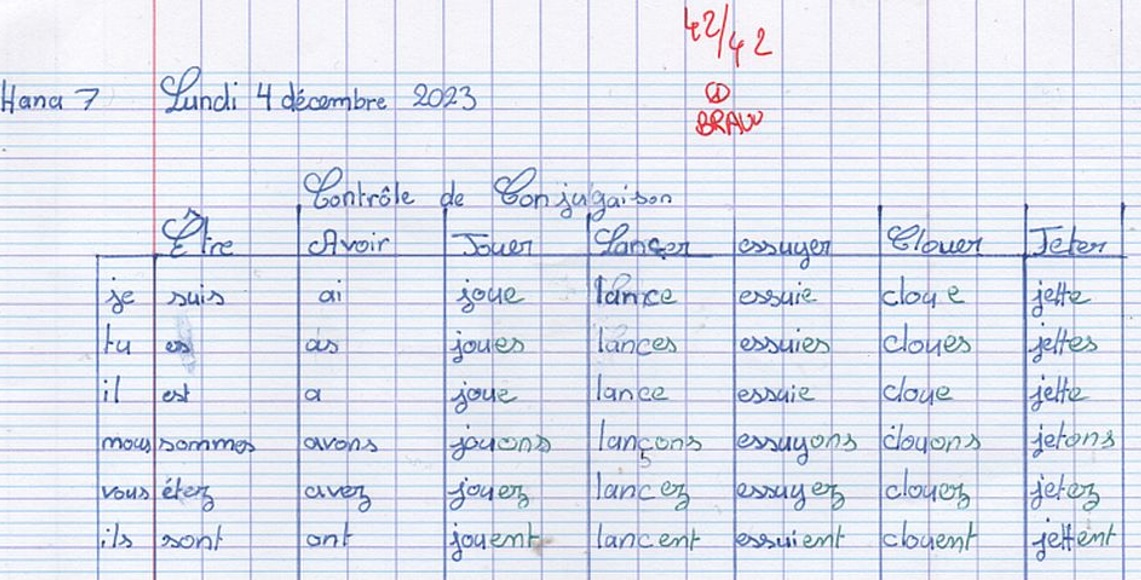 42/42
Hana 7 Lundi 4 décembre 2023
BRAVO
Contrôle de Conjugaison
Être Avoir Jouer Lancer essuyer Clouer Jeter
je suis ai joue lance essuie cloue jette
tu es as joues lances essuies cloues jettes
il est a joue lance essuie cloue jette
nous sommes avons jouons lançons essuyons clouons jetons
vous étez avez jouez lancez essuyez clouez jetez
ils sont ont jouent lancent essuient clouent jettent